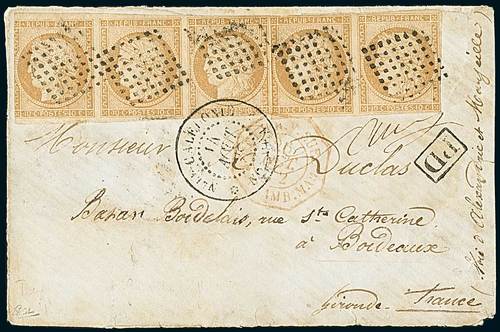 REPUB. FRANC. REPUB. FRANC. REPUB. FRANC. REPUB. FRANC. REPUB. FRANC.
10 C. POSTES 10 C. 10 C. POSTES 10 C. 10 C. POSTES 10 C. 10 C. POSTES 10 C. 10 C. POSTES 10 C.
Nlle CALEDONIE
NOUMEA
PD
Monsieur Duclas
Bazar Bordelais, rue Ste Catherine
à Bordeaux
Gironde France
(Voie d'Alexandrie et Marseille)